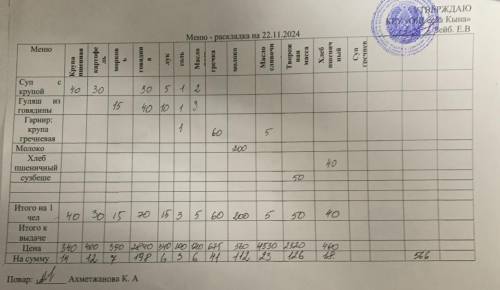 УТВЕРЖДАЮ
Лейб. Е.В
Меню - раскладка на 22.11.2024
Меню Крупа пшенная картофель морковь говядина лук соль Масло гречка молоко Масло сливочн Творожная масса Хлеб пшеничный Суп гречнев
Суп с крупой 40 30 30 5 1 2
Гуляш из говядины 15 40 10 1 3
Гарнир: крупа гречневая 1 60 5
Молоко 200
Хлеб пшеничный 40
сузбеше 50
Итого на 1 чел 40 30 15 70 15 3 5 60 200 5 50 40
Итого к выдаче
Цена 340 400 350 560 4530 2520 460
На сумму 14 12 7 198 6 3 6 41 112 23 126 18 566
Повар: Ахметжанова К. А